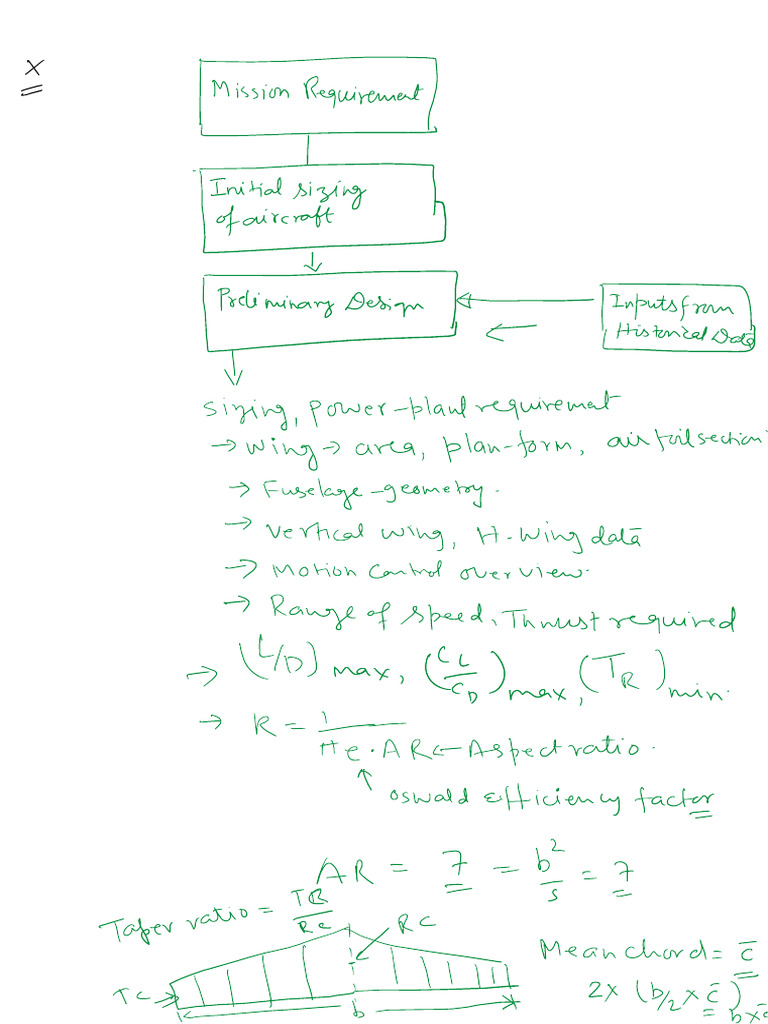 x
Mission Requirement
Initial sizing
of aircraft
Preliminary Design
Inputs from
Historical Data
Sizing, Power-plant requirement
→ Wing → area, plan-form, airfoil section
→ Fuselage-geometry.
→ Vertical wing, H-wing data
→ Motion Control overview.
→ Range of speed, Thrust required
→ (L/D) max, (CL/CD) max, (TR) min.
→ K = 1/(π e · AR) ← Aspect ratio.
↑ Oswald efficiency factor
AR = 7 = b²/s = 7
Taper ratio = TC/RC
RC
Mean chord = c̄
TC
b
2x (b/2 x c̄)